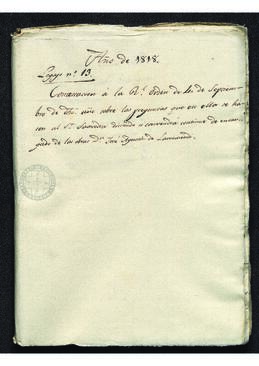 Año de 1818.
Legajo nº 13.
Contestacion á la Rl. Orden de 4 de Septiem-
bro de dho. año sobre las preguntas que en ella se ha-
cen al Sr. diciendo convendrá continue de encar-
gado de las obras Dn. José Agustin de Larramendi.